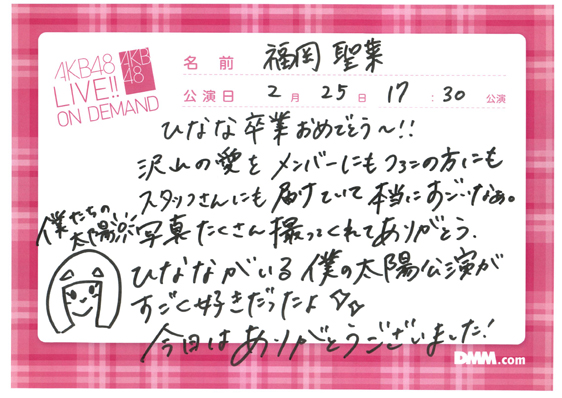 AKB48
LIVE!!
ON DEMAND
AKB
48
名前 福岡聖菜
公演日 2月25日17:30公演
ひなな卒業おめでとう〜!!
沢山の愛をメンバーにもファンの方にも
スタッフさんにも届けていて本当にすごいなぁ。
僕たちの
太陽
写真たくさん撮ってくれてありがとう、
ひなながいる僕の太陽公演が
すごく好きだったよ☆☆
今日はありがとうございました!
DMM.com